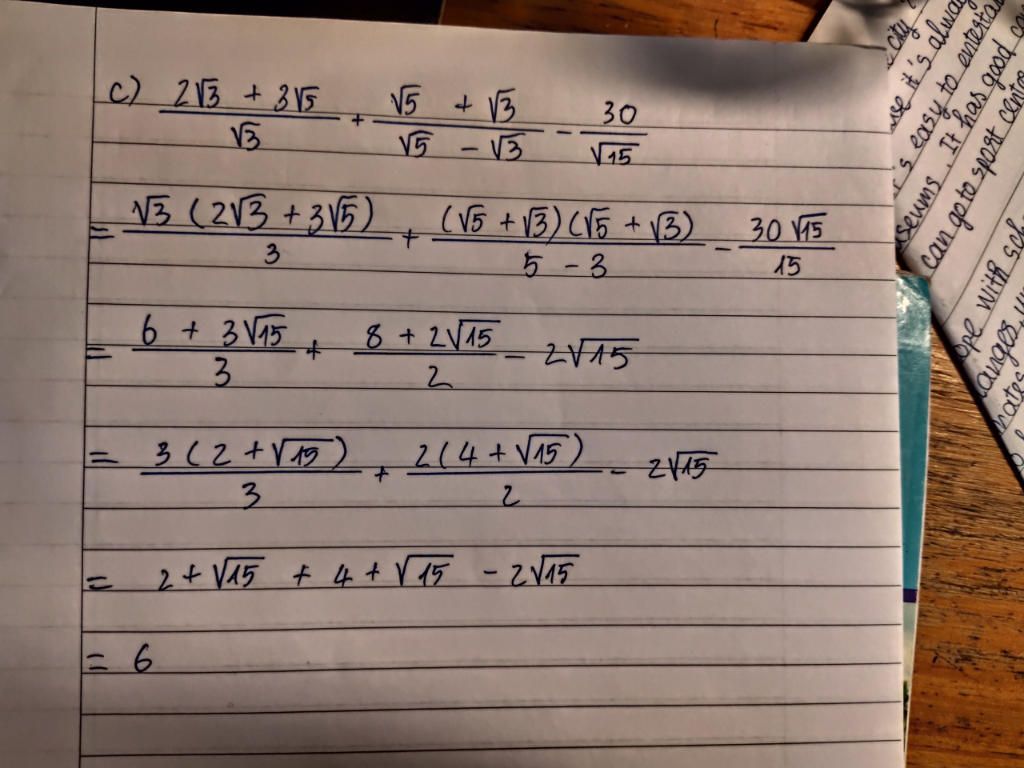 c) (2√3 + 3√5)/√3 + (√5 + √3)/(√5 − √3) − 30/√15
= √3 (2√3 + 3√5)/3 + (√5 + √3)(√5 + √3)/(5 − 3) − 30√15/15
= (6 + 3√15)/3 + (8 + 2√15)/2 − 2√15
= 3(2 + √15)/3 + 2(4 + √15)/2 − 2√15
= 2 + √15 + 4 + √15 − 2√15
= 6
city
it's always
's easy to entertai
It has good
can go to sport centre
with